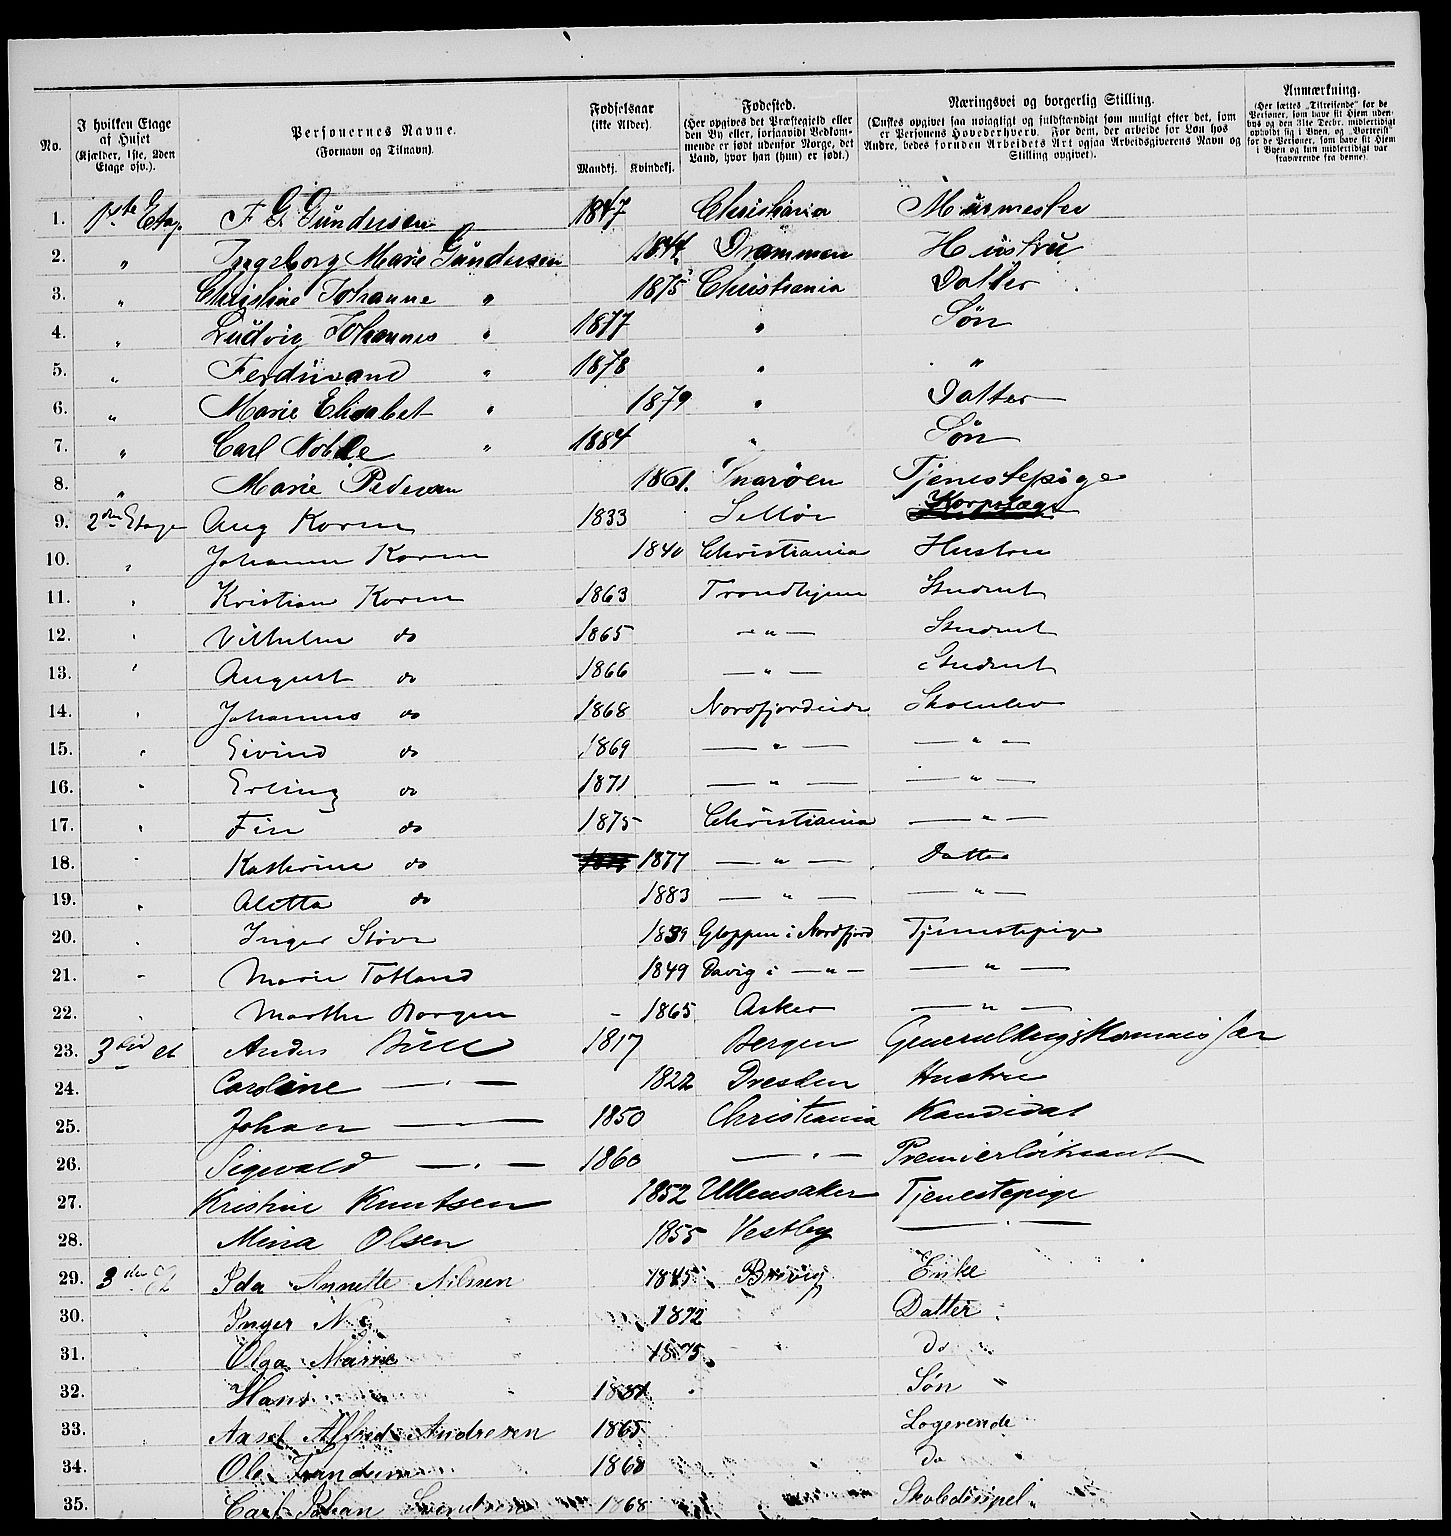 No.
I hvilken Etage af Huset (Kjælder, 1ste, 2den Etage osv.).
Personernes Navne. (Fornavn og Tilnavn).
Fødselsaar (ikke Alder). Mandkj. Kvindekj.
Fødested. (Her opgives det Præstegjeld eller den By eller, forsaavidt Vedkommende er født udenfor Norge, det Land, hvor han (hun) er født.)
Næringsvei og borgerlig Stilling. (Ønskes opgivet saa nøiagtigt og fuldstændigt som muligt efter det, som er Personens Hovederhverv. For dem, der arbeide for Løn hos Andre, bedes foruden Arbeidets Art ogsaa Arbeidsgiverens Navn og Stilling opgivet).
Anmærkning. (Her sættes „Tilreisende“ for de Personer, som have sit Hjem udenbys og den 31te Decbr. midlertidigt opholdt sig i Byen, og „Bortreist“ for de Personer, som have sit Hjem i Byen og kun midlertidigt var fraværende fra denne).
1. 1ste Etag. F. G. Gundersen 1847 Christiania Murmester
2. " Ingeborg Marie Gundersen 1844 Drammen Hustru
3. " Christine Johanne " 1875 Christiania Datter
4. " Ludvig Johannes " 1877 " Søn
5. " Ferdinand " 1878 " "
6. " Marie Elisabet " 1879 " Datter
7. " Carl Nobele " 1884 " Søn
8. " Marie Pedersen 1861. Snarøen Tjenestepige
9. 2den Etage Aug Koren 1833 Selløe Korpslæge
10. " Johanne Koren 1840 Christiania Hustru
11. " Kristian Koren 1863 Trondhjem Student
12. " Vilhelm do 1865 — " — Student
13. " August do 1866 — " — Student
14. " Johannes do 1868 Nordfjordeide Skoleelev
15. " Eivind do 1869 — " — — " —
16. " Erling do 1871 — " — — " —
17. " Fin do 1875 Christiania — " —
18. " Kathrine do 1877 — " — Datter
19. " Aletta do 1883 — " — — " —
20. " Inger Støve 1839 Gloppen i Nordfjord Tjenestepige
21. " Marie Totland 1849 Davig i — " — — " —
22. " Marthe Borgen 1865 Asker — " —
23. 3die et Anders Büll 1817 Bergen Generalkrigskommissær
24. Caroline — " — 1822 Dresden Hustru
25. Johan — — 1850 Christiania Kandidat
26. Sigvald — " — 1860 — " — Premierløitnant
27. Kristine Knutsen 1852 Ullensaker Tjenestepige
28. Mina Olsen 1855 Vestby — " —
29. 3die Et Ida Annette Nilssen 1845 Brevig Enke
30. Inger N. 1872 " Datter
31. Olga Marie 1875 " do
32. Hans 1881 " Søn
33. Axsel Alfred Andresen 1865 Logerende
34. Ole 1868 do
35. Carl Johan Svendsen 1868 Skoledisipel